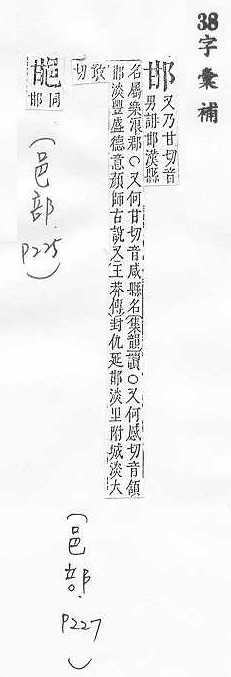 38字彙補
邯
又乃甘切音
男䛁邯漢縣
名屬樂浪郡○又何甘切音咸縣名集韻讀○又何感切音頷
邯淡豐盛德意顏師古說又王莽傳封仇延邯淡里附城淡大
敢
切
(邑部 P227)
同
邯
(邑部 P225)